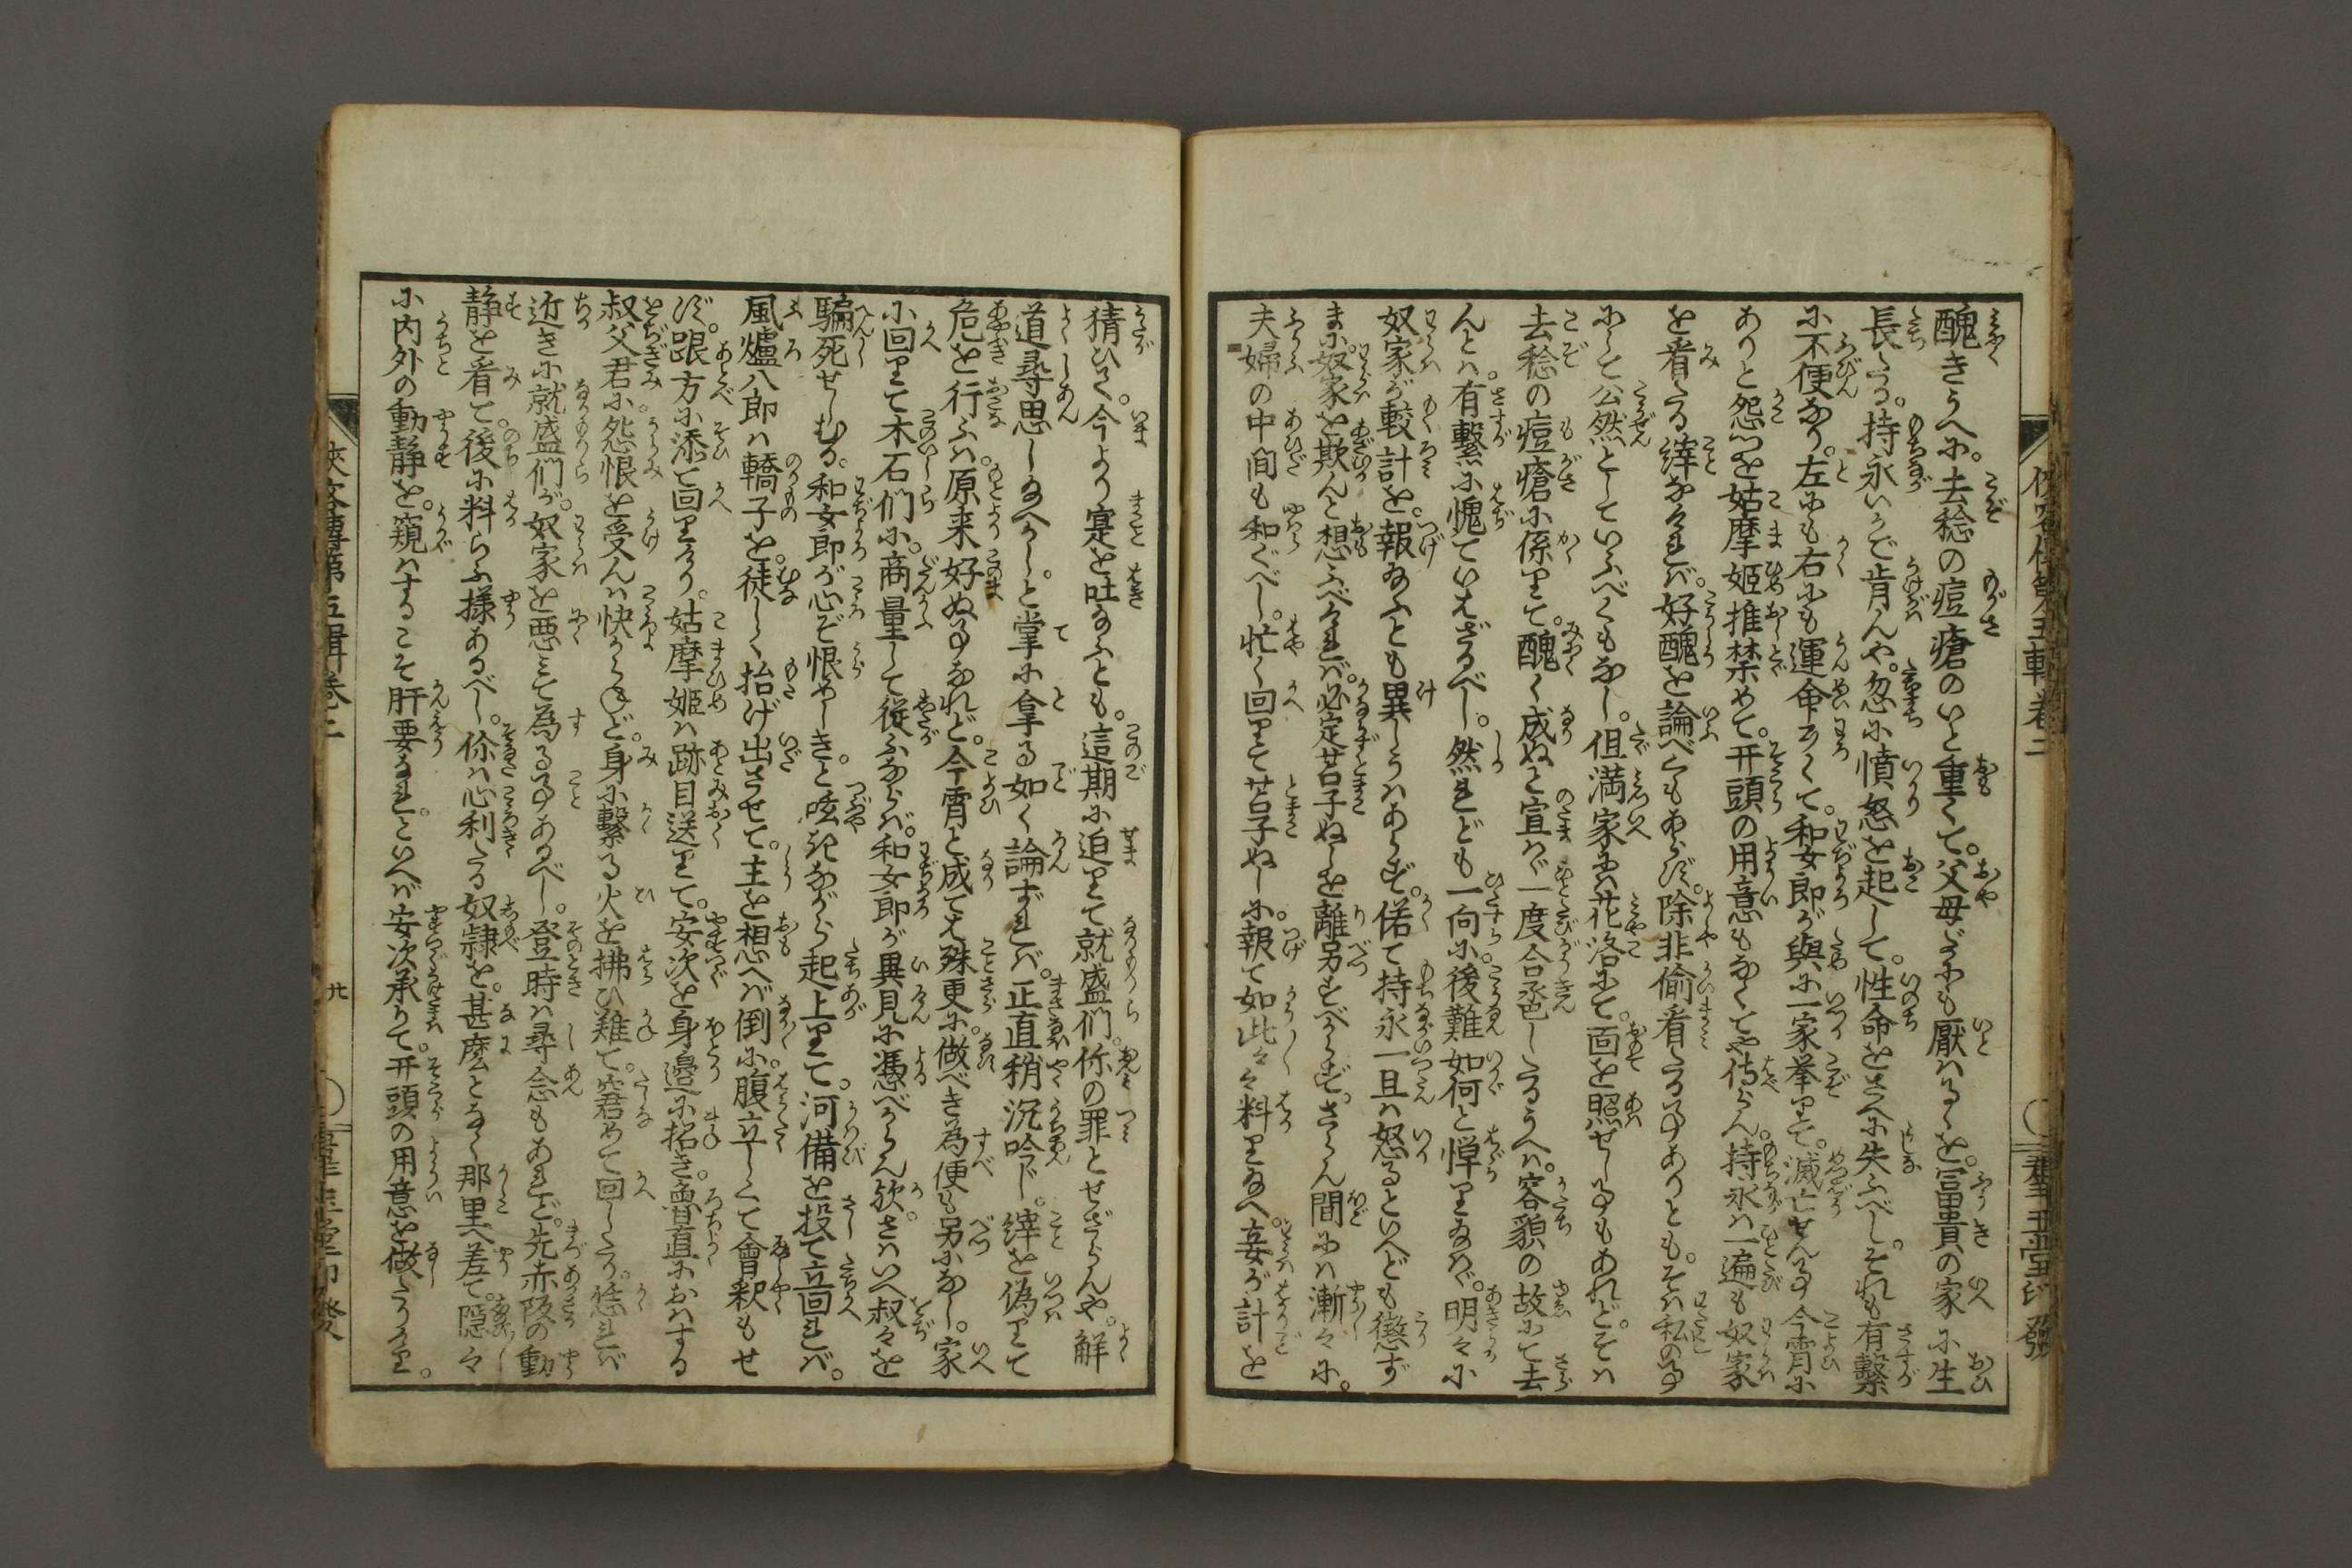 醜きうへに。去稔の痘瘡のいと重くて。父母だにも厭はるゝを。冨貴の家に生
長たる。持永いかで肯んや。忽に憤怒を起して。性命をさへに失ふべし。それも有繋
に不便なり。左にも右にも運命竭て。和女郎が與に一家挙りて。滅亡せん事今宵に
ありと怨つを姑摩姫推禁めて。开頭の用意もなくてや侍らん。持永は一遍も奴家
を看たる。縡なければ。好醜を論べくもあらず。除非偸看たる事ありとも。そは私の事
にして公然としていふべくもなし。但満家は花洛にて。面を照せし事もあれど。そは
去稔の痘瘡に係りて。醜く成ぬと宣はゞ一度合巹したるうへは。容貌の故に去
んとは。有繋に愧ていはざるべし。然れども一向に。後難如何と憚り給はゞ。明々に
奴家が較計を。報給ふとも異しうはあらず。偌て持永一旦は怒るといへども懲ず
まに。奴家を欺んと想ふべければ。必定苫子ぬしを離別すべからず。さらん間には漸々に。
夫婦の中間も和ぐべし。忙く回りて苫子ぬしに。報て如此々々料り給へ。妾が計を
猜ひて。今より寔を吐給ふとも。這期に迫りて就盛們。你の罪とせざらんや。觧
道尋思し給へかし。と掌に拿る如く論ずれば。正直稍沉吟じ。縡を偽りて
危を行ふは。原来好ぬ事なれど。今宵と成ては殊更に。做べき為便も別になし。家
に回りて木石們に。商量して従ふならば。和女郎が異見に憑べからん歟。さはいへ叔々を
騙死せしむる。和女郎が心ぞ恨めしき。と呟きながら起上りて。河備を投て立回れば。
風爐八郎は轎子を。徒しく抬げ出させて。主を想へば倒に。腹立しくて會釈もせ
ず。跟方に添て回りけり。姑摩姫は跡目送りて。安次を身邊に招き。魯直におはする
叔父君に。怨恨を受んは快からねど。身に繋る火を拂ひ難て。窘めて回したり。恁れば
近きに就盛們が。奴家を悪みて為る事あるべし。登時は尋念もあれど。先赤阪の動
静を看て。後に料らふ様あるべし。你は心利たる奴隷を。甚麼となく那里へ差て。隠々
に内外の動静を。窺はするこそ肝要なれ。といへば安次承りて。开頭の用意を做たりけり。
侠客傳第五輯巻二
廿